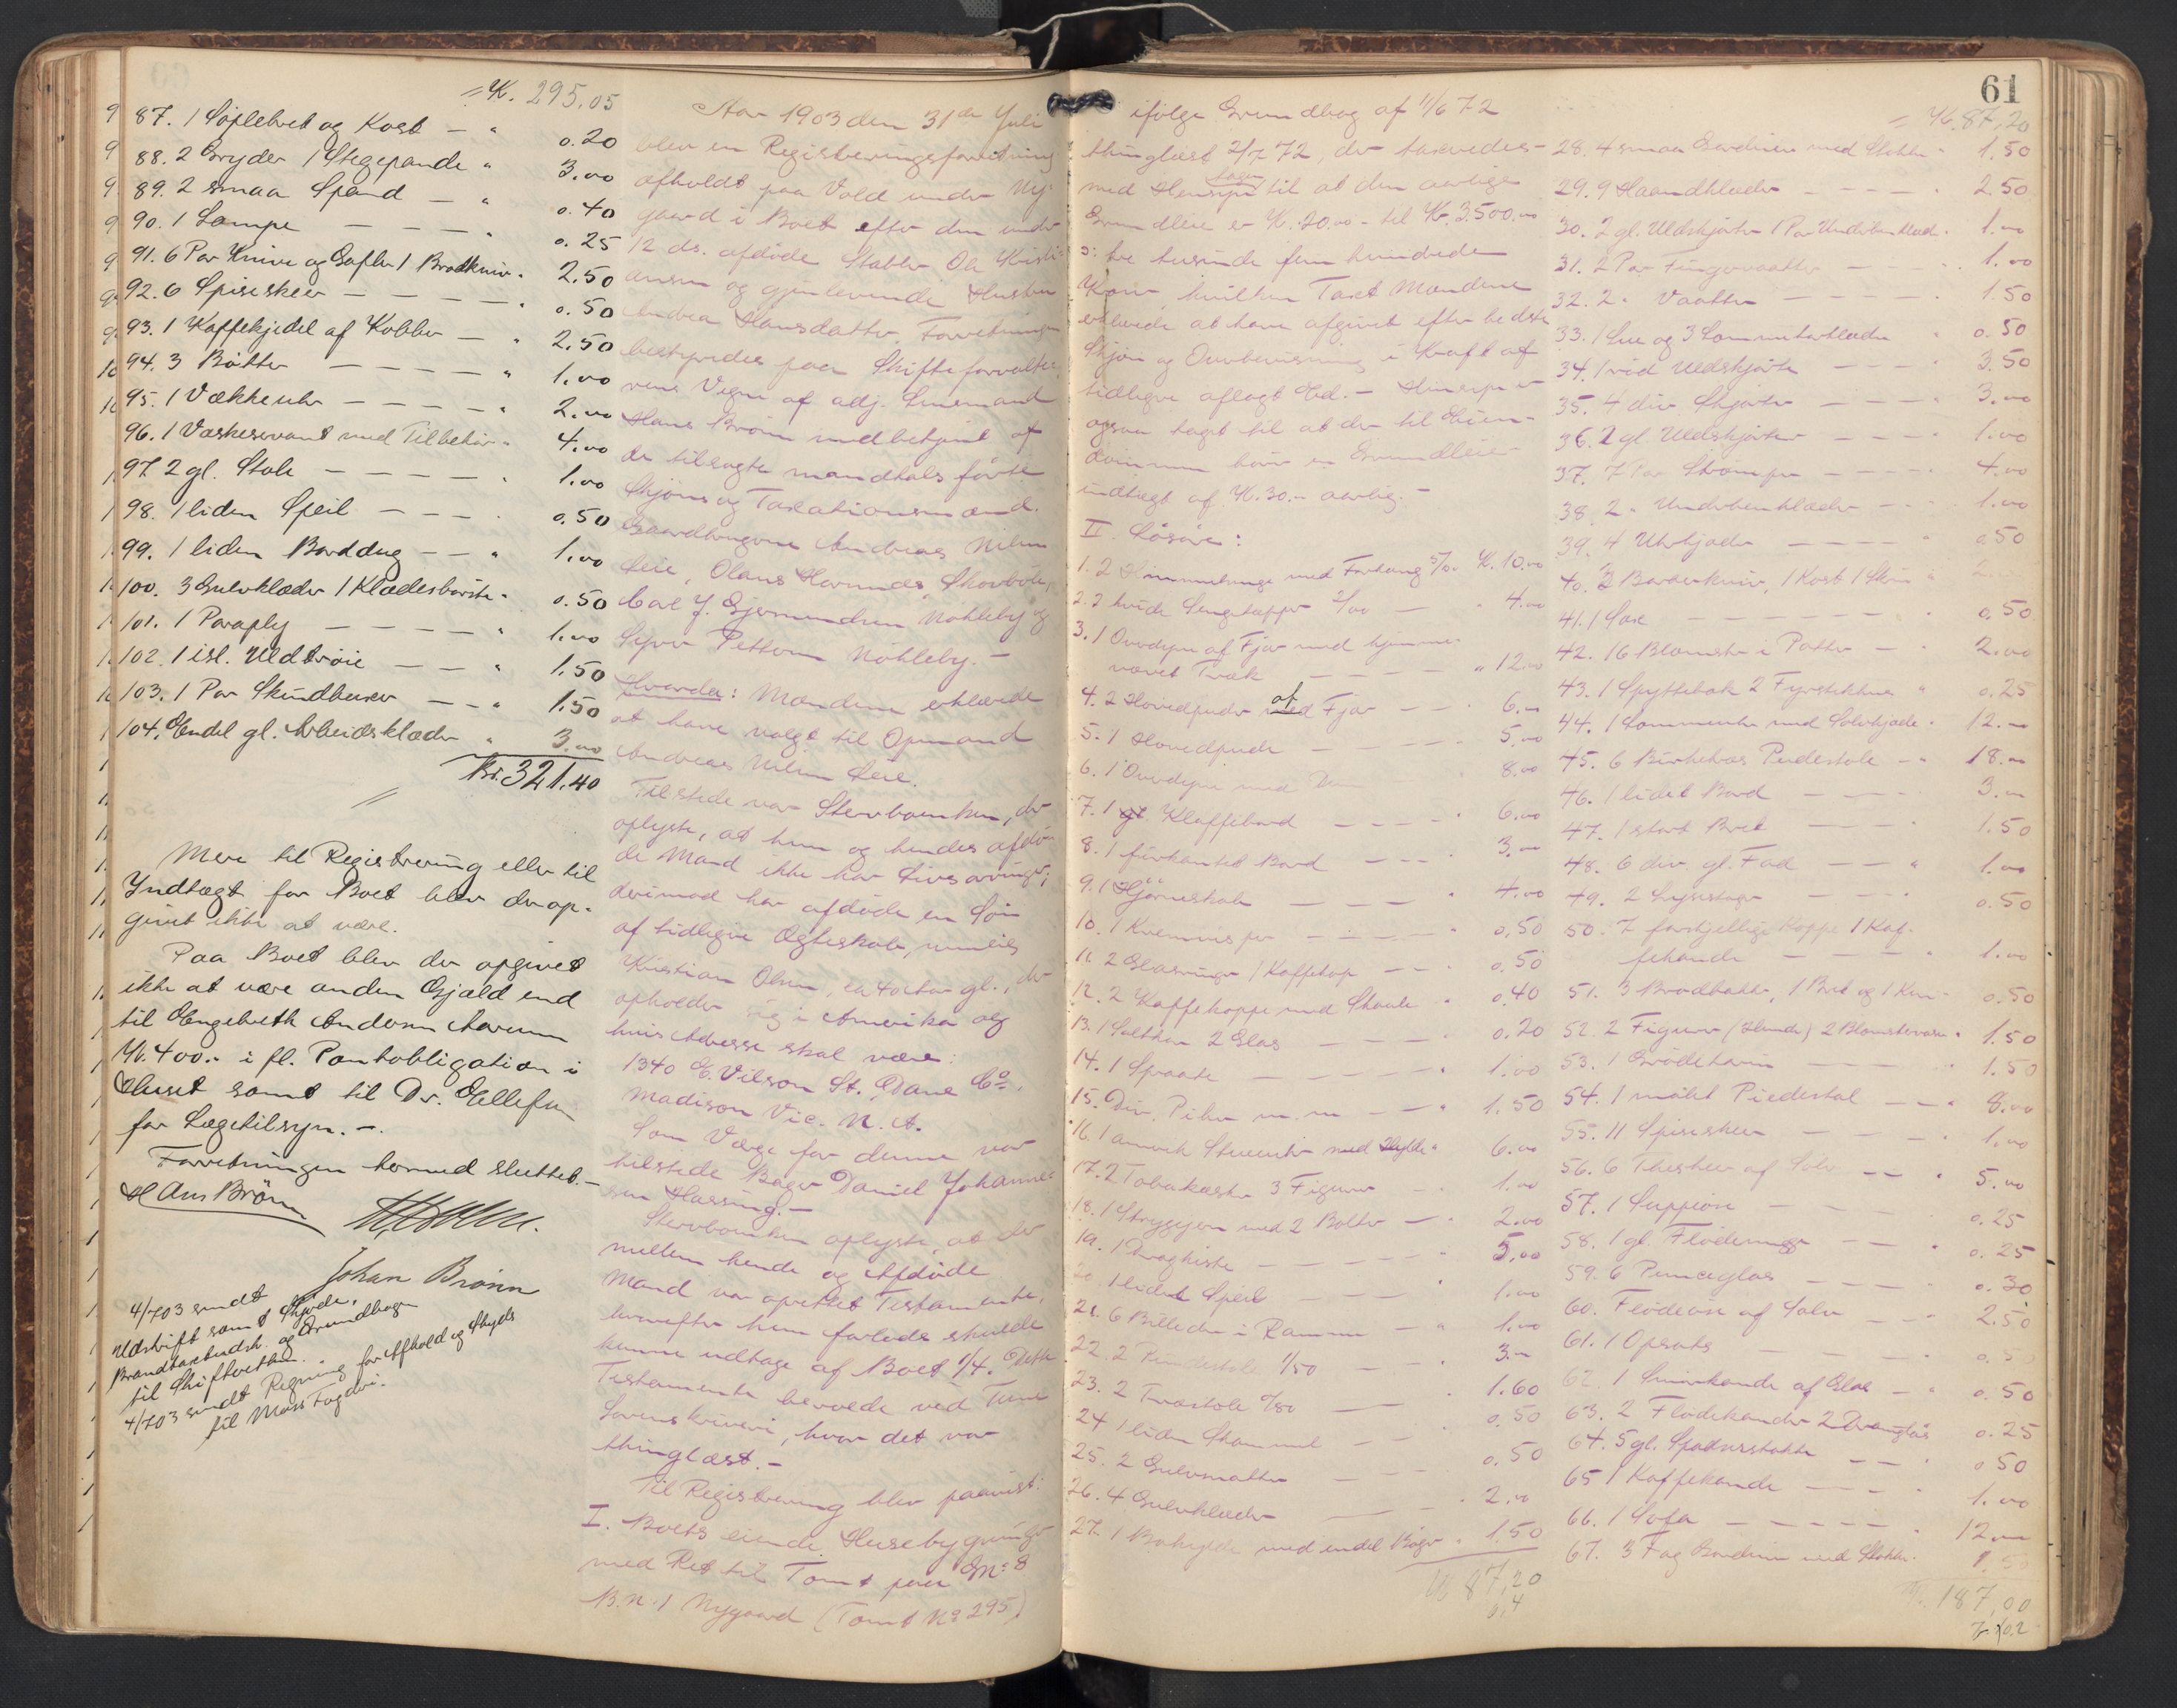 = K. 295.05
87. 1 Söplebret og Kost — " 0.20
88. 2 Gryder 1 Stegepande " 3.00
89. 2 smaa Spand — " 0.40
90. 1 Lampe — — — " 0.25
91. 6 Par Knive og Gafler 1 Brødkniv " 2.50
92. 6 Spiseskeer — — — — " 0.50
93. 1 Kaffekjedel af Kobber — " 2.50
94. 3 Bøtter — — — — " 1.00
95. 1 Vækkeuhr — — — — " 2.00
96. 1 Vaskeservant med Tilbehör " 4.00
97. 2 gl. Stole — — — — " 1.00
98. 1 liden Speil — — — 0.50
99. 1 liden Borddug — — " 1.00
100. 3 Gulvklæder 1 Klædesbörste " 0.50
101. 1 Paraply — — — — " 1.00
102. 1 isl. Uldtröie — — " 1.50
103. 1 Par Skindbuxer — — " 1.50
104. Endel gl. Arbeidsklæder " 3.00
Kr. 321.40
Mere til Registrering eller til
Indtægt for Boet blev der op-
givet ikke at være.
Paa Boet blev der opgivet
ikke at være anden Gjæld end
til Engebreth Andersen Aarum
K. 400.- i fl. Pantobligation i
Huset samt til Dr. Ellefsen
for Lægetilsyn. -.
Forretningen hermed sluttet. -
Hans Brønn
Johan Brönn
4/7 03 sendt
Udskrift samt Skjøde,
Brandtaxtudsk. og Grundbogen
til Skifteretten.
4/7 03 sendt Regning for Afhold og Skyds
til Moss Fogderi.
Aar 1903 den 31te Juli
blev en Registreringsforretning
afholdt paa Vold under Ny-
gaard i Boet efter den under
12 ds. afdöde Stabler Ole Kristi-
ansen og gjenlevende Hustru
Andrea Hansdatter. Forretningen
bestyredes paa Skifteforvalte-
rens Vegne af adj. Lensmand
Hans Brönn med betjent af
de tilsagte mandtalsförte
Skjöns og Taxationsmænd.
Gaardbrugerne Andreas Nilsen
Leie, Olaus Hannes, Skovböle,
Carl J. Gjermundsen Nöhleby og
Sefver Pettersen Nöhleby. -
Hvorda: Mændene erklærede
at have valgt til Opmand
Andreas Nilsen Leie.
Tilstede var Stervboenken, der
oplyste, at hun og hendes afdö-
de Mand ikke har Livsarvinger,
derimod har afdöde en Sön
af tidligere Ægteskab, nemlig
Kristian Olsen, ca 40 Aar gl., der
opholder sig i Amerika og
hvis Adresse skal være:
1340 E. Vilson St., Dane Co.
Madison Vic. N. A.
Som Værge for denne var
tilstede Bager Daniel Johanne-
sen Hassing. -
Stervboenken oplyste, at der
mellem hende og Afdöde
Mand var oprettet Testamente,
hvorefter hun forlods skulde
kunne udtage af Boet 1/4. Dette
Testamente beroede ved Tune
Sorenskriveri, hvor det var
thinglæst. -
Til Registrering blev paavist:
I. Boets eiende Husebygninger
med Ret til Tomt paa G.n. 8
B.N. 1 Nygaard (Tomt No 295)
61
ifölge Grundbog af 11/6 72
thinglæst 2/7 72, der taxeredes -
med Hensyn tagen til at den aarlige
Grundleie er K. 20.00 - til K. 3500.00
o: tre tusinde fem hundrede
Kroner, hvilken Taxt Mændene
erklærede at have afgivet efter bedste
Skjön og Overbevisning i Kraft af
tidligere aflagt Ed. - Hensyn er
ogsaa taget til at der til Eien-
dommen hörer en Grundleie-
indtægt af K. 30.- aarlig. -
II. Lösöre:
1. 2 Himmelsenge med Forhæng 5/00 K. 10.00
2. 2 hvide Sengetæpper 2/00 — " 4.00
3. 1 Overdyne af Fjær med hjemme-
vævet Træk — — — — " 12.00
4. 2 Hovedpuder af Fjær — — " 6.00
5. 1 Hovedpude — — — " 5.00
6. 1 Overdyne med 8.00
7. 1 Klaffebord — — — " 6.00
8. 1 firkantet Bord — — — " 3.00
9. 1 Hjörneskab — — — " 4.00
10. 1 — — — — " 0.50
11. 2 1 Kaffekop — — " 0.50
12. 2 Kaffekopper med Skaale " 0.40
13. 1 Saltkar 2 Glas — — — 0.20
14. 1 — — — — 1.00
15. Div. m. m — — " 1.50
16. 1 amerik Stueuhr med Hylde " 6.00
17. 2 3 Figurer — 1.00
18. 1 Strygejern med 2 Bolter — " 2.00
19. 1 Dragkiste — — — — " 5.00
20. 1 lidet Speil — — — " 1.00
21. 6 Billeder i Ramme — " 1.00
22. 2 Pindestole 1/50 — — " 3.-
23. 2 Træstole 0/80 — — " 1.60
24. 1 liden Skammel — — " 0.50
25. 2 Gulvmatter — — — 0.50
26. 4 Gulvklæder — — " 2.00
27. 1 Boghylde med endel Böger " 1.50
K 87.20
= K. 87.20
28. 4 smaa Gardiner med Stokke " 1.50
29. 9 Haandklæder — — — " 2.50
30. 2 gl. Uldskjörter 1 Par Underbenklæd. " 1.00
31. 2 Par Fingervaatter — — " 1.00
32. 2 " Vaatter — — — — " 1.50
33. 1 Lue og 3 Lommetörklæder " 0.50
34. 1 röd Uldskjörte — — — " 3.50
35. 4 div. Skjorter — — — " 3.00
36. 2 gl Uldskjorter — — — " 1.00
37. 7 Par Strömper — — — — " 4.00
38. 2 " Underbenklæder — — " 1.00
39. 4 Uhrkjæder — — — — " 0.50
40. 2 Barberknive, 1 Kost 1 "
41. 1 Sax — — — — — — " 0.50
42. 16 Blomster i Potter — " 2.00
43. 1 Spyttebak 2 Fyrstikhus " 0.25
44. 1 Lommeuhr med Sölvkjæde " 12.-
45. 6 Birketræs Pindestole — " 18.00
46. 1 lidet Bord — — — " 3.00
47. 1 stort Bret — — " 1.50
48. 6 div. gl. Fad — — " 1.00
49. 2 Lysestager — — — " 0.50
50. 7 forskjellige Kopper 1 Kaf-
fekande — — — — " 1.00
51. 3 Brødbakker, 1 Bret og 1 0.50
52. 2 Figurer (Hunde) 2 Blomstervaser " 1.50
53. 1 Grödeterrin — — — " 1.50
54. 1 malet Piedestal — — " 8.00
55. 11 Spiseskeer — — — " 1.00
56. 6 Theskeer af Sölv — — " 5.00
57. 1 — — — — 0.25
58. 1 gl. Flödemugge — — " 0.25
59. 6 Punceglas — — — " 0.30
60. Flödeöse af Sölv — — " 2.50
61. 1 Opsats — — — —
62. 1 af Glas — " 0.50
63. 2 Flödekander 2 0.25
64. 5 gl. Spadserstokke — — " 0.50
65. 1 Kaffekande — — — " 1.00
66. 1 Sofa — — — — — " 12.00
67. 3 Fag Gardiner med Stokke "
187.00